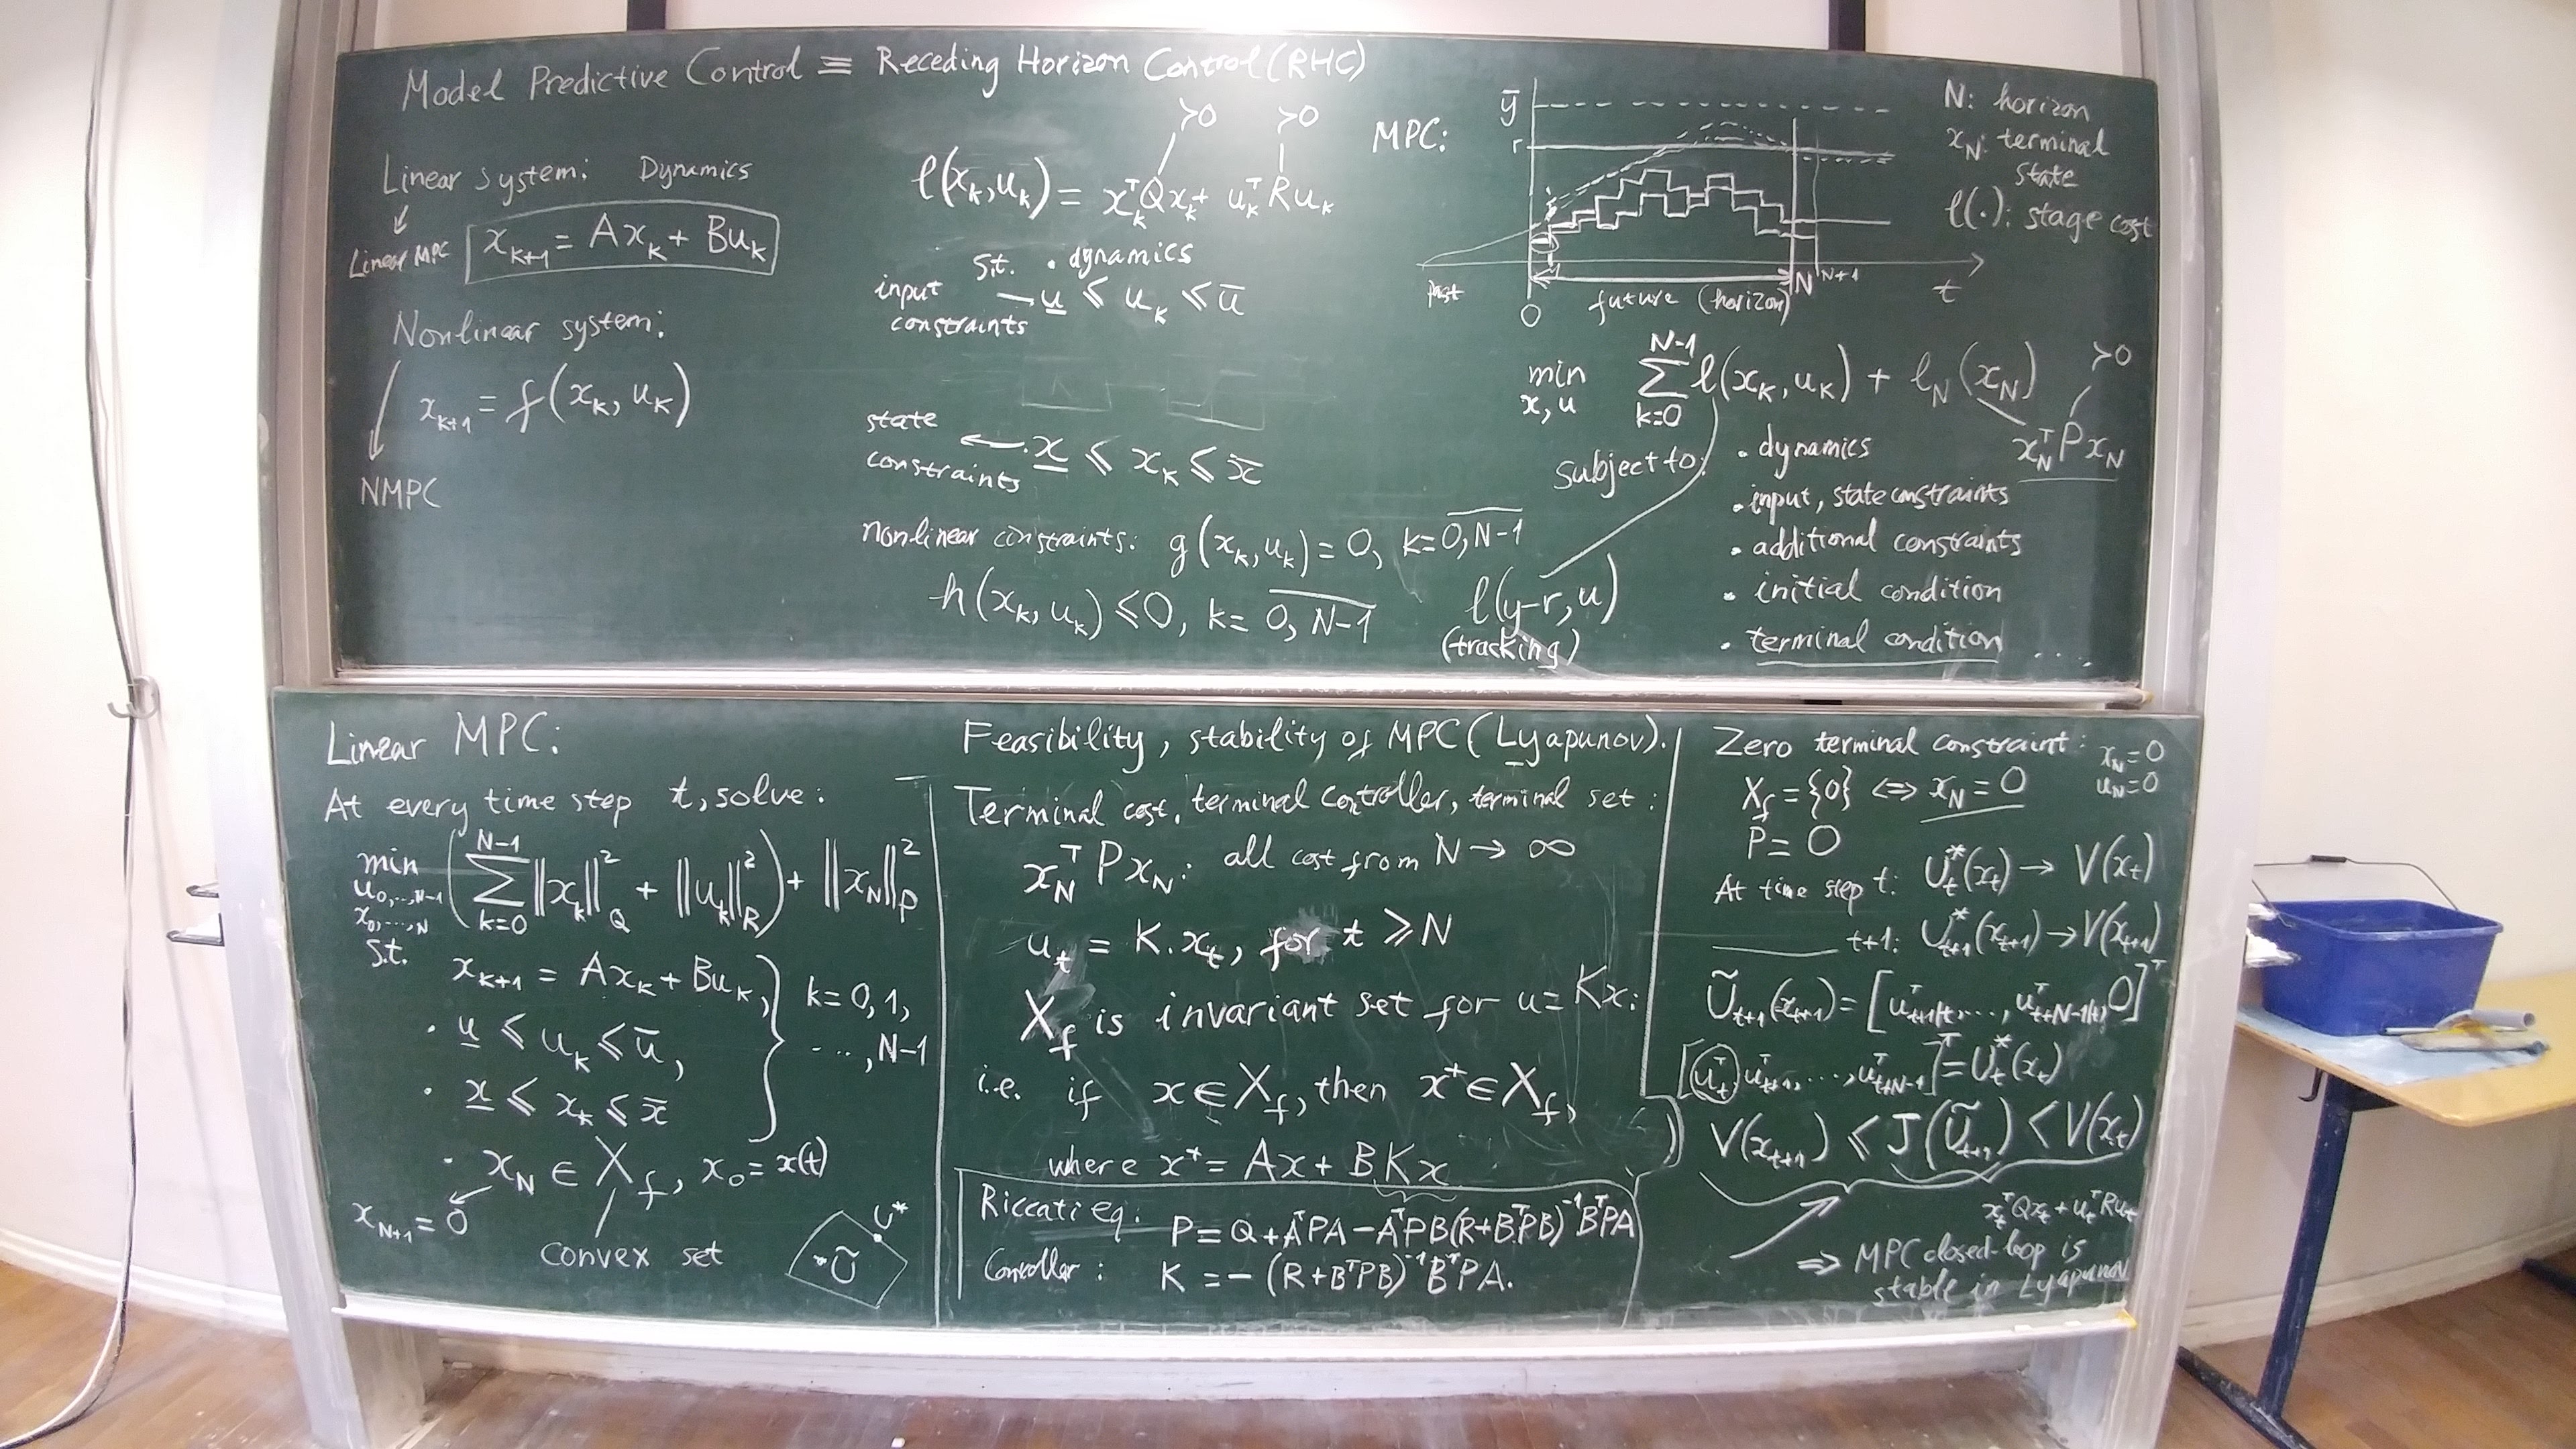 Model Predictive Control ≡ Receding Horizon Control (RHC)
Linear system: Dynamics
Linear MPC
x_{k+1} = Ax_k + Bu_k
Nonlinear system:
x_{k+1} = f(x_k, u_k)
NMPC
>0 >0
ℓ(x_k, u_k) = x_k^T Q x_k + u_k^T R u_k
s.t. • dynamics
input constraints → u̲ ≤ u_k ≤ ū
state constraints ← x̲ ≤ x_k ≤ x̄
nonlinear constraints: g(x_k, u_k) = 0, k = \overline{0, N-1}
h(x_k, u_k) ≤ 0, k = \overline{0, N-1}
MPC:
ȳ
r
past
0
future (horizon)
N
N+1
t
N: horizon
x_N: terminal
state
ℓ(.): stage cost
min_{x,u} ∑_{k=0}^{N-1} ℓ(x_k, u_k) + ℓ_N(x_N)
>0
x_N^T P x_N
subject to:
• dynamics
• input, state constraints
• additional constraints
• initial condition
• terminal condition ....
ℓ(y-r, u)
(tracking)
Linear MPC:
At every time step t, solve:
min_{u_0,...,N-1 x_0,...,N} (∑_{k=0}^{N-1} ||x_k||_Q^2 + ||u_k||_R^2) + ||x_N||_P^2
s.t.
x_{k+1} = Ax_k + Bu_k,
• u̲ ≤ u_k ≤ ū,
• x̲ ≤ x_k ≤ x̄
} k = 0, 1,
..., N-1
• x_N ∈ X_f, x_0 = x(t)
x_{N+1} = 0
convex set
U*
• Ũ
Feasibility, stability of MPC (Lyapunov).
Terminal cost, terminal controller, terminal set:
x_N^T P x_N: all cost from N → ∞
u_t = K.x_t, for t ≥ N
X_f is invariant set for u = Kx:
i.e. if x ∈ X_f, then x⁺ ∈ X_f,
where x⁺ = Ax + BKx
Riccati eq: P = Q + A^T PA - A^T PB(R + B^T PB)^{-1} B^T PA
Controller: K = -(R + B^T PB)^{-1} B^T PA.
Zero terminal constraint: x_N = 0
u_N = 0
X_f = {0} ⇔ x_N = 0
P = 0
At time step t: U_t^*(x_t) → V(x_t)
t+1: U_{t+1}^*(x_{t+1}) → V(x_{t+1})
Ũ_{t+1}(x_{t+1}) = [u_{t+1|t}^T, ..., u_{t+N-1|t}^T, 0]^T
[u_t^T, u_{t+1}^T, ..., u_{t+N-1}^T]^T = U_t^*(x_t)
V(x_{t+1}) ≤ J(Ũ_{t+1}) < V(x_t)
x_t^T Q x_t + u_t^T R u_t
⇒ MPC closed-loop is
stable in Lyapunov